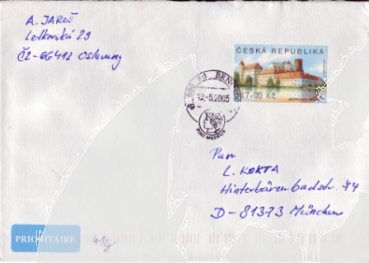 A. JAROŠ
29
ČZ-66412 Oslavany
ČESKÁ REPUBLIKA
17.00 Kč
12.-5.2005
Pan
L. KOKTA
Hinterbärenbadstr. 74
D-81373 München
PRIORITAIRE
41g